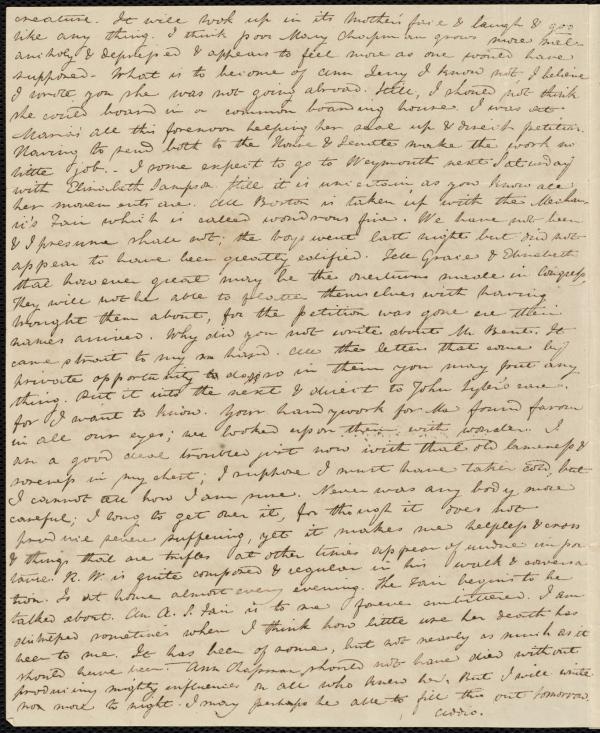 creature. It will look up in its Mother's face & laugh & goo
like any thing. I think poor Mary Chapman grows more mel-
ancholy & depressed & appears to feel more as one would have
supposed. What is to become of Ann Terry I know not, I believe
I wrote you she was not going abroad. Still, I should not think
she could board in a common boarding house. I was at
Maria's all this forenoon helping her seal up & direct petitions.
Having to send both to the House & Senate make the work no
little job. - I some expect to go to Weymouth next Saturday
with Elizabeth Sampson. Still it is uncertain, as you know all
her movements are. All Boston is taken up with the Mechan-
ic's Fair which is called wondrous fine. We have not been
& I presume shall not; the boys went last night but did not
appear to have been greatly edified. Tell Grace & Elizabeth
that however great may be the overturns made in Congress,
they will not be able to flatter themselves with having
brought them about, for the petition was gone ere their
names arrived. Why did you not write about Mr Bent. It
came straight to my hand. All the letters that come by
private opportunity to do so in them you may put any
thing. Put it into the next & direct to John Tyler's care.
for I want to know. Your handywork for Ma found favour
in all our eyes; we looked upon them with wonder. I
am a good deal troubled just now with that old lameness &
soreness in my chest; I suppose I must have taken cold, but
I cannot tell how I am sure. Never was any body more
careful; I long to get over it, for though it does not
produce severe suffering, yet it makes me helpless & cross
& things that are trifles at other times appear of undue impor-
tance. R. W. is quite composed & regular in his walk & conversa-
tion. Is at home almost every evening. The Fair begins to be
talked about. An A. S. Fair is to me forever embittered. I am
distressed sometimes when I think how little use her death has
been to me. It has been of some, but not nearly as much as it
should have been. Ann Chapman should not have died without
producing mighty influences on all who knew her. But I will write
non more to night. I may perhaps be able to fill this out tomorrow.
Addio.